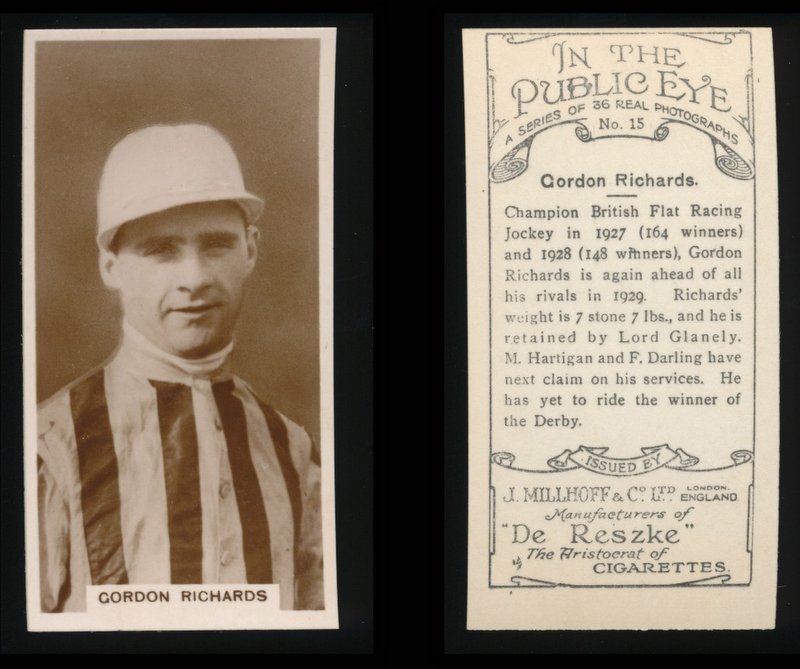 GORDON RICHARDS
IN THE
PUBLIC EYE
A SERIES OF 36 REAL PHOTOGRAPHS
No. 15
Gordon Richards.
Champion British Flat Racing
Jockey in 1927 (164 winners)
and 1928 (148 winners), Gordon
Richards is again ahead of all
his rivals in 1929. Richards'
weight is 7 stone 7 lbs., and he is
retained by Lord Glanely.
M. Hartigan and F. Darling have
next claim on his services. He
has yet to ride the winner of
the Derby.
ISSUED BY
J. MILLHOFF & CO. LTD. LONDON. ENGLAND
Manufacturers of
"De Reszke"
"The Aristocrat of
CIGARETTES.